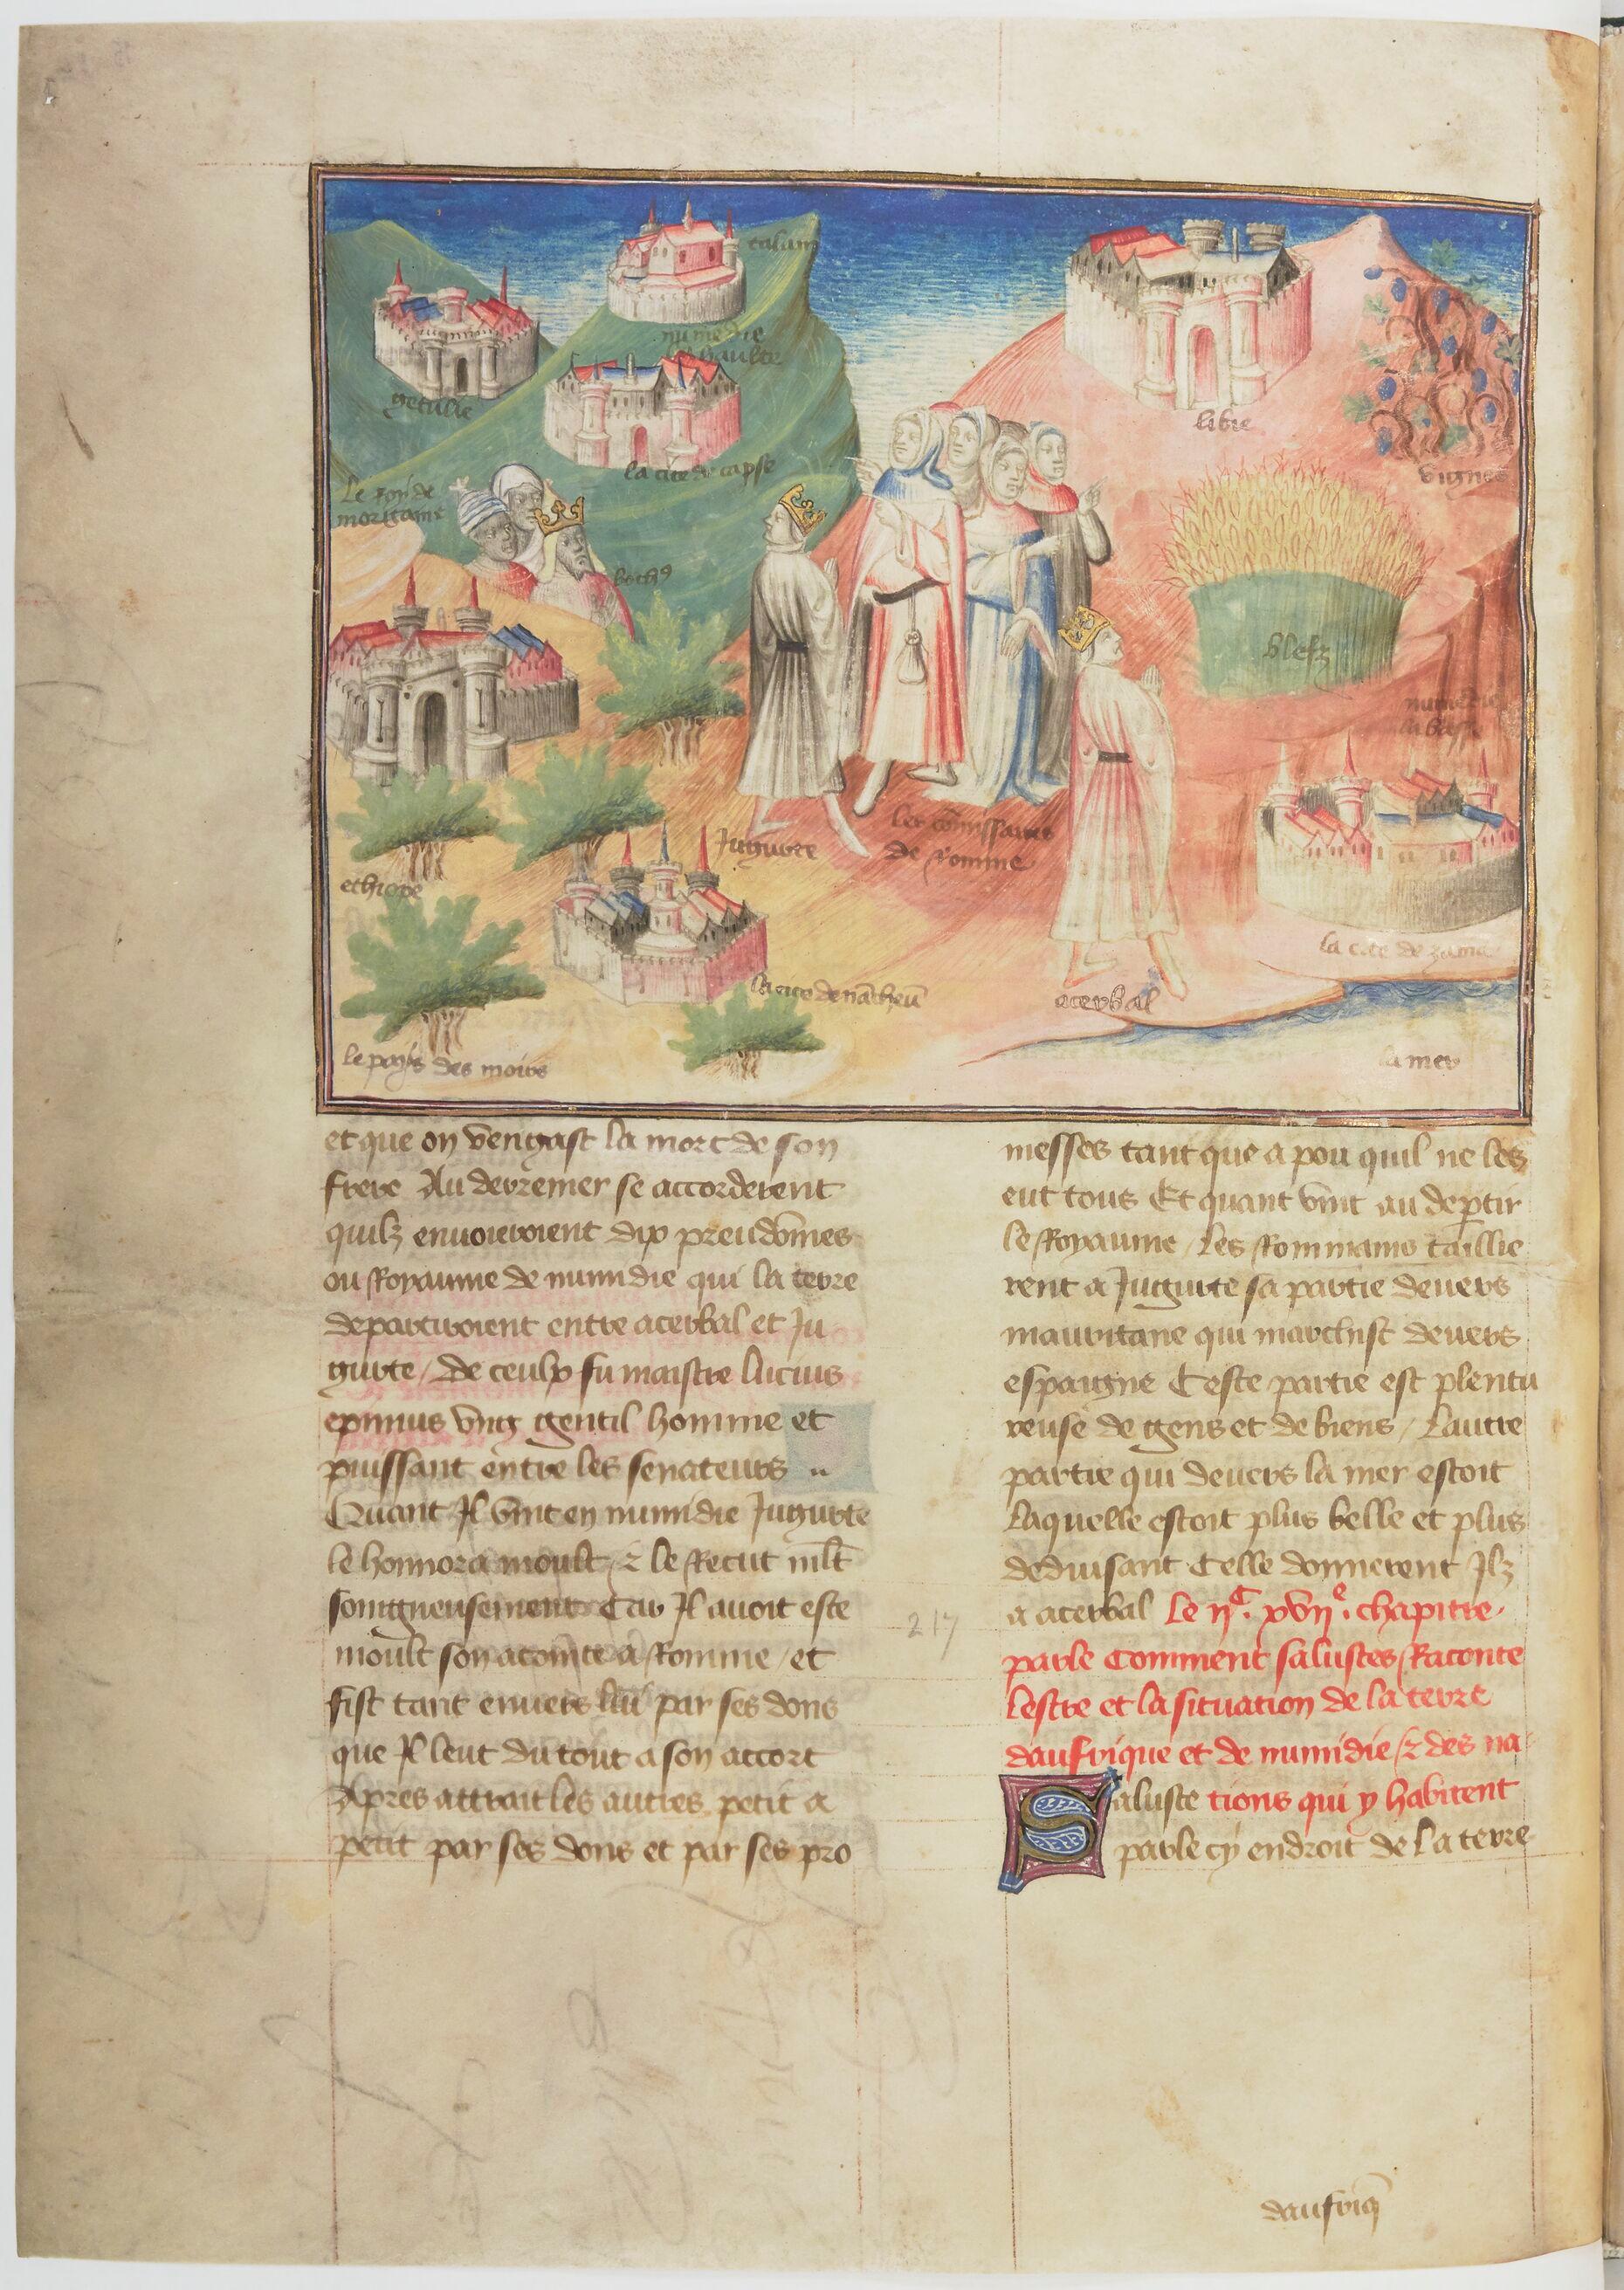 calam
numedie
haulte
getulie
la cite de capse
le roy de
moritaine
libie
vignes
bleſz
numedie
la basse
ethiope
Jugurte
les co͞missaires
de romme
la cite de zama
acerbal
le pays des moirs
la mer
et que on vengast la mort de son
frere Au derremer se accorderent
quilz envoieroient dix preudo͞mes
ou Royaume de numidie qui la terre
departiroient entre acerbal et Ju
gurte / De ceulx fu maistre lucius
epimius vng gentil homme et
puissant entre les senateurs ..
Quant Jl vint en numidie Jugurte
le honnora moult / ⁊ le Recut ml͞t
soingneusement Car Jl auoit este
moult son acointe a Romme / et
fist tant enuers lui par ses dons
que Jl leut du tout a son accort
Apres attrait les autres petit a
petit par ses dons et par ses pro
messes tant que a pou quil ne les
eut tous Et quant vint au deꝑtir
le Royaume / les Rommains taillie
rent a Jugurte sa partie deuers
mauritane qui marchist deuers
espaigne Ceste partie est plentu
reuse de gens et de biens / Lautre
partie qui deuers la mer estoit
Laquelle estoit plus belle et plus
deduisant Celle donnerent Jlz
a acerbal Le ijᶜ. xvijᵉ. chapitre.
parle Comment salustes Raconte
lestre et la situation de la terre
daufrique et de numidie / ⁊ des na
Saluste tions qui y habitent
parle cy endroit de la terre
217
daufriq͞